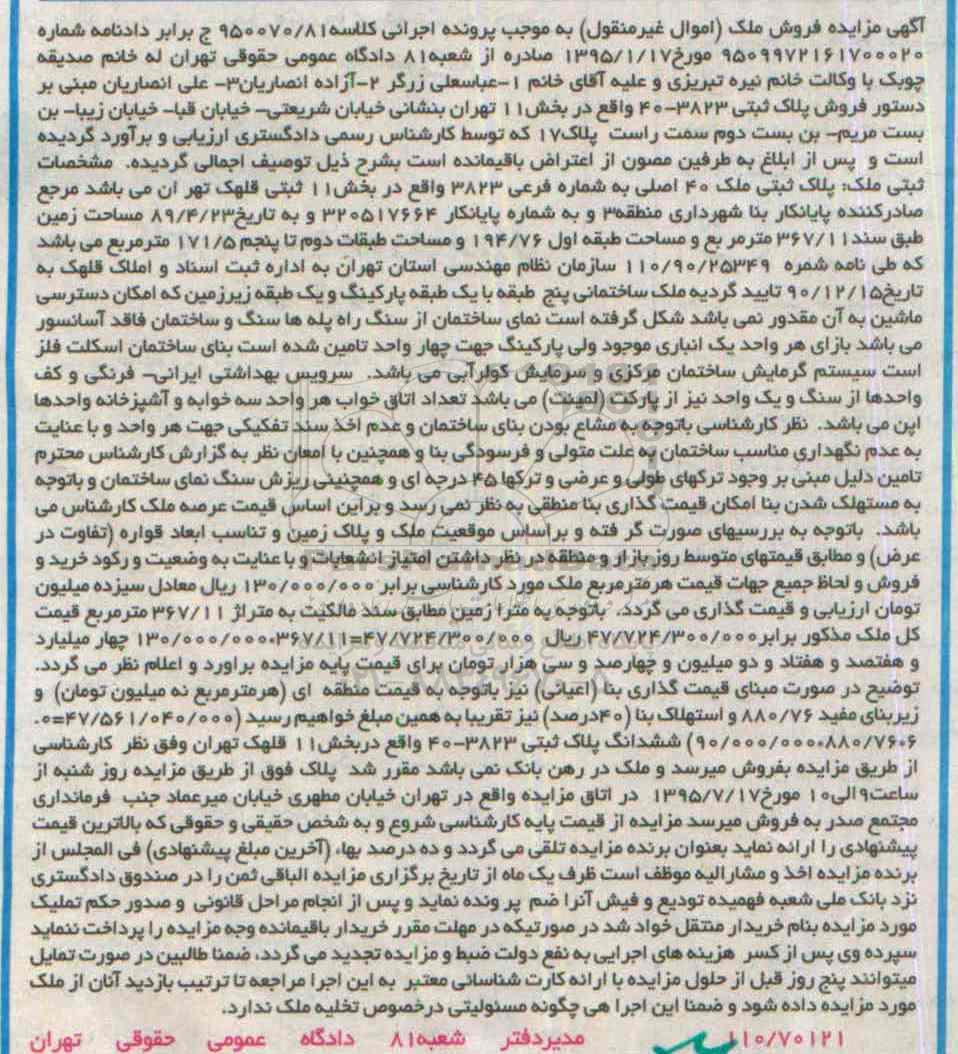 آگهی مزایده فروش ملک (اموال غیرمنقول) به موجب پرونده اجرائی کلاسه۹۵۰۰۷۰/۸۱ ج برابر دادنامه شماره
۹۵۰۹۹۷۲۱۶۱۷۰۰۰۲۰ مورخ۱۳۹۵/۱/۱۷ صادره از شعبه۸۱ دادگاه عمومی حقوقی تهران له خانم صدیقه
چوبک با وکالت خانم نیره تبریزی و علیه آقای خانم ۱-عباسعلی زرگر ۲-آزاده انصاریان۳- علی انصاریان مبنی بر
دستور فروش پلاک ثبتی ۳۸۲۳-۴۰ واقع در بخش۱۱ تهران بنشانی خیابان شریعتی- خیابان قبا- خیابان زیبا- بن
بست مریم- بن بست دوم سمت راست پلاک۱۷ که توسط کارشناس رسمی دادگستری ارزیابی و برآورد گردیده
است و پس از ابلاغ به طرفین مصون از اعتراض باقیمانده است بشرح ذیل توصیف اجمالی گردیده. مشخصات
ثبتی ملک: پلاک ثبتی ملک ۴۰ اصلی به شماره فرعی ۳۸۲۳ واقع در بخش۱۱ ثبتی قلهک تهر ان می باشد مرجع
صادرکننده پایانکار بنا شهرداری منطقه۳ و به شماره پایانکار ۳۲۰۵۱۷۶۶۴ و به تاریخ۸۹/۴/۲۳ مساحت زمین
طبق سند۳۶۷/۱۱ مترمر بع و مساحت طبقه اول ۱۹۴/۷۶ و مساحت طبقات دوم تا پنجم ۱۷۱/۵ مترمربع می باشد
که طی نامه شمره ۱۱۰/۹۰/۲۵۳۴۹ سازمان نظام مهندسی استان تهران به اداره ثبت اسناد و املاک قلهک به
تاریخ۹۰/۱۲/۱۵ تایید گردیه ملک ساختمانی پنج طبقه با یک طبقه پارکینگ و یک طبقه زیرزمین که امکان دسترسی
ماشین به آن مقدور نمی باشد شکل گرفته است نمای ساختمان از سنگ راه پله ها سنگ و ساختمان فاقد آسانسور
می باشد بازای هر واحد یک انباری موجود ولی پارکینگ جهت چهار واحد تامین شده است بنای ساختمان اسکلت فلز
است سیستم گرمایش ساختمان مرکزی و سرمایش کولرآبی می باشد. سرویس بهداشتی ایرانی- فرنگی و کف
واحدها از سنگ و یک واحد نیز از پارکت (لمینت) می باشد تعداد اتاق خواب هر واحد سه خوابه و آشپزخانه واحدها
اپن می باشد. نظر کارشناسی باتوجه به مشاع بودن بنای ساختمان و عدم اخذ سند تفکیکی جهت هر واحد و با عنایت
به عدم نگهداری مناسب ساختمان به علت متولی و فرسودگی بنا و همچنین با امعان نظر به گزارش کارشناس محترم
تامین دلیل مبنی بر وجود ترکهای طولی و عرضی و ترکها ۴۵ درجه ای و همچنینی ریزش سنگ نمای ساختمان و باتوجه
به مستهلک شدن بنا امکان قیمت گذاری بنا منطقی به نظر نمی رسد و براین اساس قیمت عرصه ملک کارشناس می
باشد. باتوجه به بررسیهای صورت گر فته و براساس موقعیت ملک و پلاک زمین و تناسب ابعاد قواره (تفاوت در
عرض) و مطابق قیمتهای متوسط روز بازار و منطقه در نظر داشتن امتیاز انشعابات و با عنایت به وضعیت و رکود خرید و
فروش و لحاظ جمیع جهات قیمت هرمترمربع ملک مورد کارشناسی برابر ۱۳۰/۰۰۰/۰۰۰ ریال معادل سیزده میلیون
تومان ارزیابی و قیمت گذاری می گردد. باتوجه به مترا زمین مطابق سند مالکیت به متراژ ۳۶۷/۱۱ مترمربع قیمت
کل ملک مذکور برابر۴۷/۷۲۴/۳۰۰/۰۰۰ ریال ۱۳۰/۰۰۰/۰۰۰*۳۶۷/۱۱=۴۷/۷۲۴/۳۰۰/۰۰۰ چهار میلیارد
و هفتصد و هفتاد و دو میلیون و چهارصد و سی هزار تومان برای قیمت پایه مزایده براورد و اعلام نظر می گردد.
توضیح در صورت مبنای قیمت گذاری بنا (اعیانی) نیز باتوجه به قیمت منطقه ای (هرمترمربع نه میلیون تومان) و
زیربنای مفید ۸۸۰/۷۶ و استهلاک بنا (۴۰درصد) نیز تقریبا به همین مبلغ خواهیم رسید (۴۷/۵۶۱/۰۴۰/۰۰۰=۰.
۹۰/۰۰۰/۰۰۰*۸۸۰/۷۶*۶) ششدانگ پلاک ثبتی ۳۸۲۳-۴۰ واقع دربخش۱۱ قلهک تهران وفق نظر کارشناسی
از طریق مزایده بفروش میرسد و ملک در رهن بانک نمی باشد مقرر شد پلاک فوق از طریق مزایده روز شنبه از
ساعت۹الی۱۰ مورخ۱۳۹۵/۷/۱۷ در اتاق مزایده واقع در تهران خیابان مطهری خیابان میرعماد جنب فرمانداری
مجتمع صدر به فروش میرسد مزایده از قیمت پایه کارشناسی شروع و به شخص حقیقی و حقوقی که بالاترین قیمت
پیشنهادی را ارائه نماید بعنوان برنده مزایده تلقی می گردد و ده درصد بهاء (آخرین مبلغ پیشنهادی) فی المجلس از
برنده مزایده اخذ و مشارالیه موظف است ظرف یک ماه از تاریخ برگزاری مزایده الباقی ثمن را در صندوق دادگستری
نزد بانک ملی شعبه فهمیده تودیع و فیش آنرا ضم پر ونده نماید و پس از انجام مراحل قانونی و صدور حکم تملیک
مورد مزایده بنام خریدار منتقل خواد شد در صورتیکه در مهلت مقرر خریدار باقیمانده وجه مزایده را پرداخت ننماید
سپرده وی پس از کسر هزینه های اجرایی به نفع دولت ضبط و مزایده تجدید می گردد، ضمنا طالبین در صورت تمایل
میتوانند پنج روز قبل از حلول مزایده با ارائه کارت شناسائی معتبر به این اجرا مراجعه تا ترتیب بازدید آنان از ملک
مورد مزایده داده شود و ضمنا این اجرا هی چگونه مسئولیتی درخصوص تخلیه ملک ندارد.
۱۱۰/۷۰۱۲۱ مدیردفتر شعبه۸۱ دادگاه عمومی حقوقی تهران